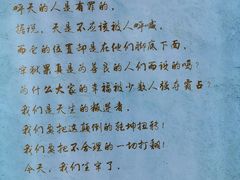 呼天的人是有罪的。
据说，天是不应该被人呼喊，
而它的位置却是在他们脚底下面。
牢狱果真是为善良的人们而设的吗？
为什么大家的幸福被少数人强夺霸占？
我们是天生的叛逆者，
我们要把这颠倒的乾坤扭转！
我们要把不合理的一切打翻！
今天，我们坐牢了，